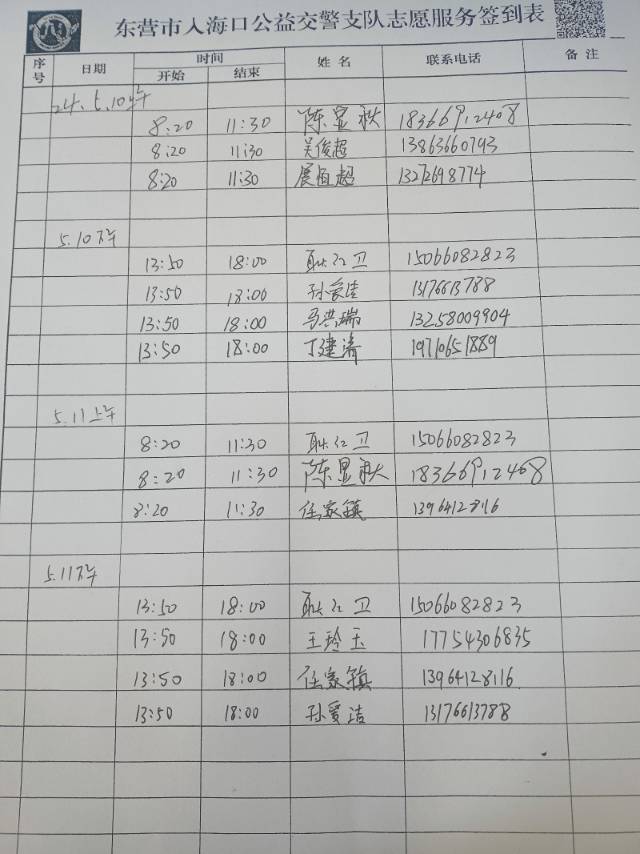 东营市入海口公益交警支队志愿服务签到表
序号 日期 时间 姓名 联系电话 备注
开始 结束
24.5.10上午
8:20 11:30 陈显秋 18366912408
8:20 11:30 吴俊超 13863660793
8:20 11:30 展恒超 13272698774
5.10下午
13:50 18:00 耿红卫 15066082823
13:50 18:00 孙爱洁 13176613788
13:50 18:00 马洪瑞 13258009904
13:50 18:00 丁建涛 19710651889
5.11上午
8:20 11:30 耿红卫 15066082823
8:20 11:30 陈显秋 18366912408
8:20 11:30 任家镇 13964128116
5.11下午
13:50 18:00 耿红卫 15066082823
13:50 18:00 王玲玉 17754306835
13:50 18:00 任家镇 13964128116
13:50 18:00 孙爱洁 13176613788